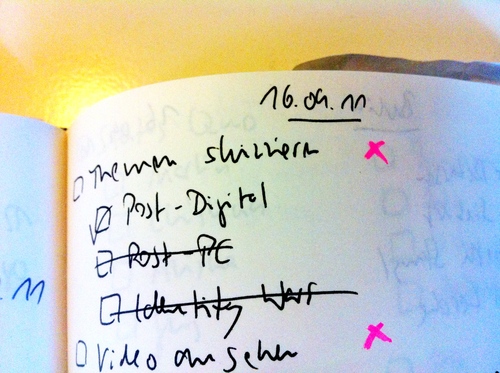 16.09.11
Themen skizzieren
Post-Digital
Post-PC
Identity Wars
Video ansehen
11